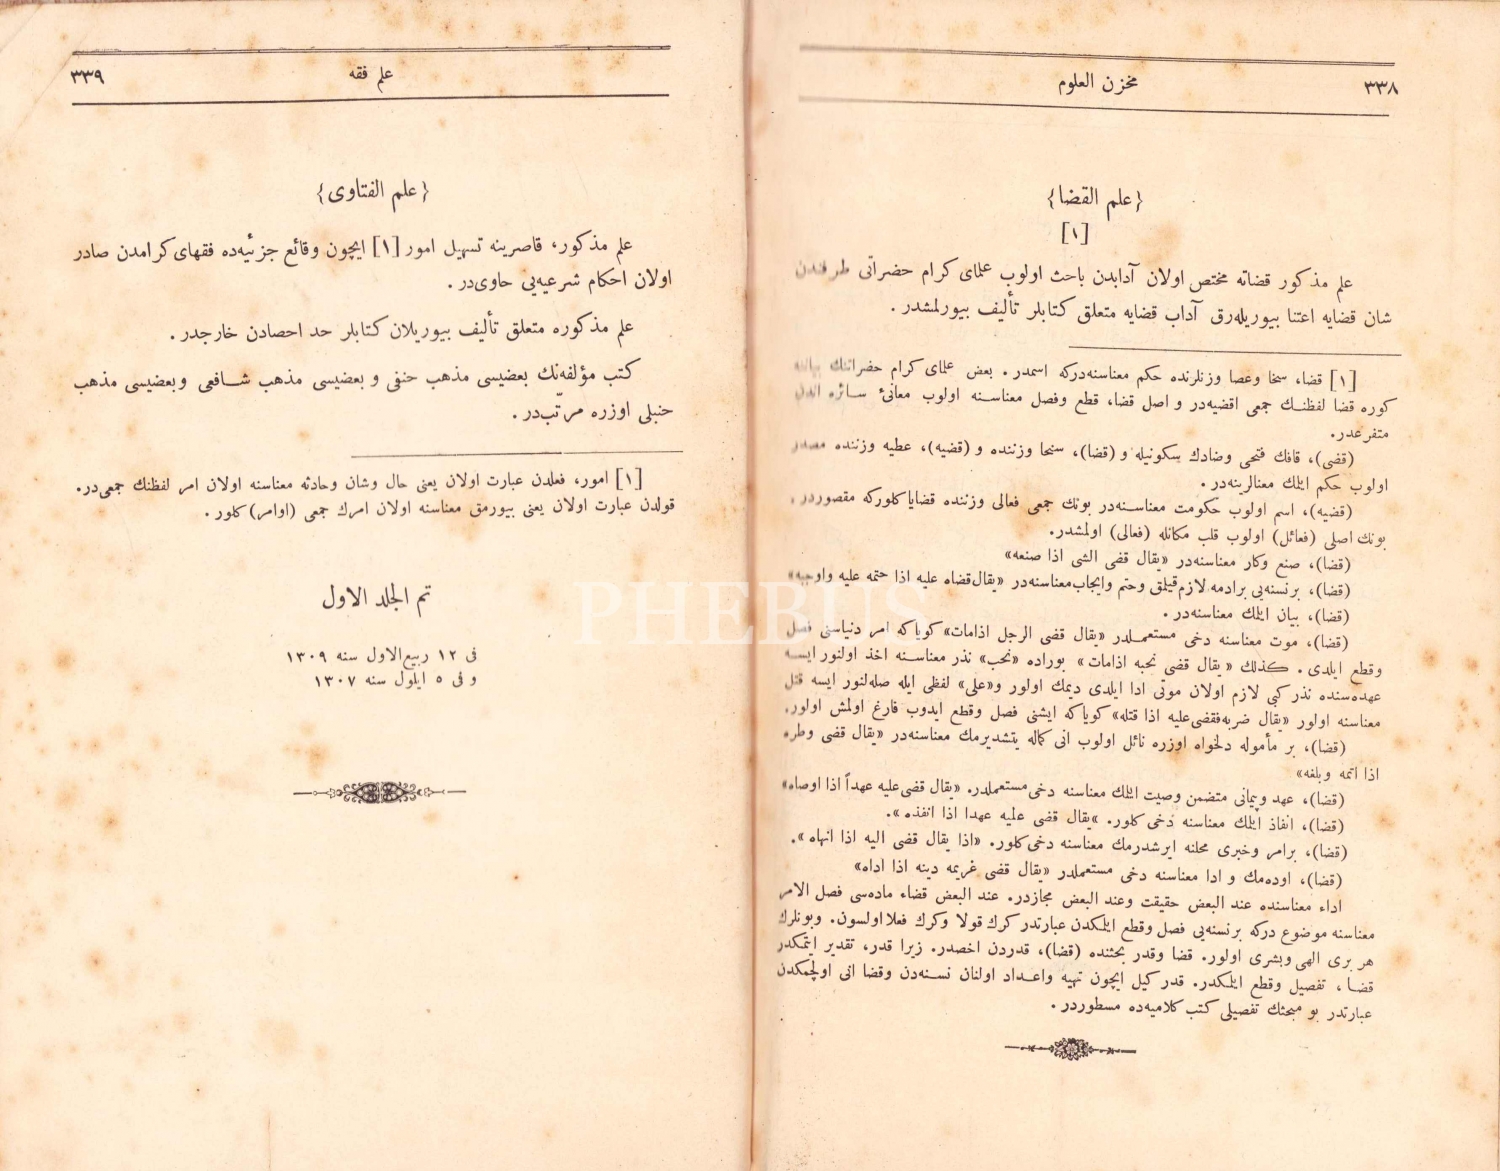 ٣٣٨
مخزن العلوم
{علم القضا}
[١]
علم مذكور قضاته مختص اولان آدابدن باحث اولوب علمای كرام حضراتی طرفندن
شان قضایه اعتنا بیوریله‌رق آداب قضایه متعلق كتابلر تألیف بیورلمشدر .
[١] قضا، سخا وعصا وزنلرنده حكم معناسنه‌دركه اسمدر . بعض علمای كرام حضراتنك بیاننه
كوره قضا لفظنـك جمعی اقضیه‌در و اصل قضا، قطع وفصل معناسـنه اولوب معانیٔ سـائره اندن
متفرعدر.
(قضی)، قافك فتحی وضادك سكونیله و (قضا)، سخا وزننده و (قضیه)، عطیه وزننده مصدر
اولوب حكم ایلك معنالرینه‌در .
(قضیه)، اسم اولوب حكومت معناسـنه‌در بونك جمعی فعالی وزننده قضایا كلوركه مقصوردر .
بونك اصلی (فعائل) اولوب قلب مكانله (فعالی) اولمشدر.
(قضا)، صنع وكار معناسنه‌در «یقال قضی الشی اذا صنعه»
(قضا)، برنسنه‌یی برادمه لازم قیلمق وحتم وایجاب معناسنه‌در «یقال قضاه علیه اذا حتمه علیه واوجبه»
(قضا)، بیان ایلك معناسنه‌در .
(قضا)، موت معناسنه دخی مستعملـدر «یقال قضی الرجل اذامات» كویاكه امر دنیاسنی فصل
وقطع ایلدی . كذلك « یقال قضی نحبه اذامات » بوراده «نحب» نذر معناسـنه اخذ اولنور ایسـه
عهده‌سنده نذر كبی لازم اولان موتی ادا ایلدی دیمك اولور و«علی» لفظی ایله صله‌لنور ایسه قتل
معناسنه اولور «یقال ضربه فقضی علیه اذا قتله» كویاكه ایشنی فصل وقطع ایدوب فارغ اولمش اولور.
(قضا)، بر مأموله دلخواه اوزره نائل اولوب انی كماله یتشدیرمك معناسنه‌در «یقال قضی وطره
اذا اتمه وبلغه»
(قضا)، عهد وپیمانی متضمن وصیت ایلك معناسنه دخی مستعملدر. «یقال قضی علیه عهداً اذا اوصاه»
(قضا)، انفاذ ایلك معناسنه دخی كلور. «یقال قضی علیه عهدا اذا انفذه ».
(قضا)، برامر وخبری محلنه ایرشدرمك معناسنه دخی كلور. «اذا یقال قضی الیه اذا انهاه ».
(قضا)، اوده‌مك و ادا معناسنه دخی مستعملدر «یقال قضی غریمه دینه اذا اداه»
اداء معناسنده عند البعض حقیقت وعند البعض مجازدر. عند البعض قضاء ماده‌سی فصل الامر
معناسنه موضوع دركه برنسنه‌یی فصل وقطع ایلكدن عبارتدر كرك قولا وكرك فعلا اولسون. وبونلرك
هر بری الهی وبشری اولور. قضا وقدر بحثنده (قضا)، قدردن اخصدر. زیرا قدر، تقدیر ایتمكدر
قضـا ، تفصیل وقطع ایلكدر. قدر كیل ایچون تهیه واعـداد اولنان نسـنه‌دن وقضا انی اولچمكدن
عبارتدر بو مبحثك تفصیلی كتب كلامیه‌ده مسطوردر .
علم فقه
٣٣٩
{علم الفتاوی}
علم مذكور، قاصرینه تسهیل امور [١] ایچون وقائع جزئیه‌ده فقهای كرامدن صادر
اولان احكام شرعیه‌یی حاوی‌در .
علم مذكوره متعلق تألیف بیوریلان كتابلر حد احصادن خارجدر .
كتب مؤلفه‌نك بعضیسی مذهب حنفی و بعضیسی مذهب شـافعی وبعضیسی مذهب
حنبلی اوزره مرتّب‌در .
[١] امور، فعلدن عبارت اولان یعنی حال وشان وحادثه معناسنه اولان امر لفظنك جمعی‌در.
قولدن عبارت اولان یعنی بیورمق معناسنه اولان امرك جمعی (اوامر) كلور .
تم الجلد الاول
فی ١٢ ربیع‌الاول سنه ١٣٠٩
و فی ٥ ایلول سنه ١٣٠٧
PHEBUS